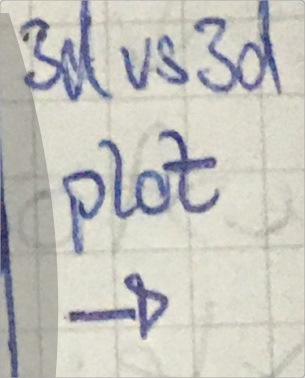 3d vs 3d
plot
→